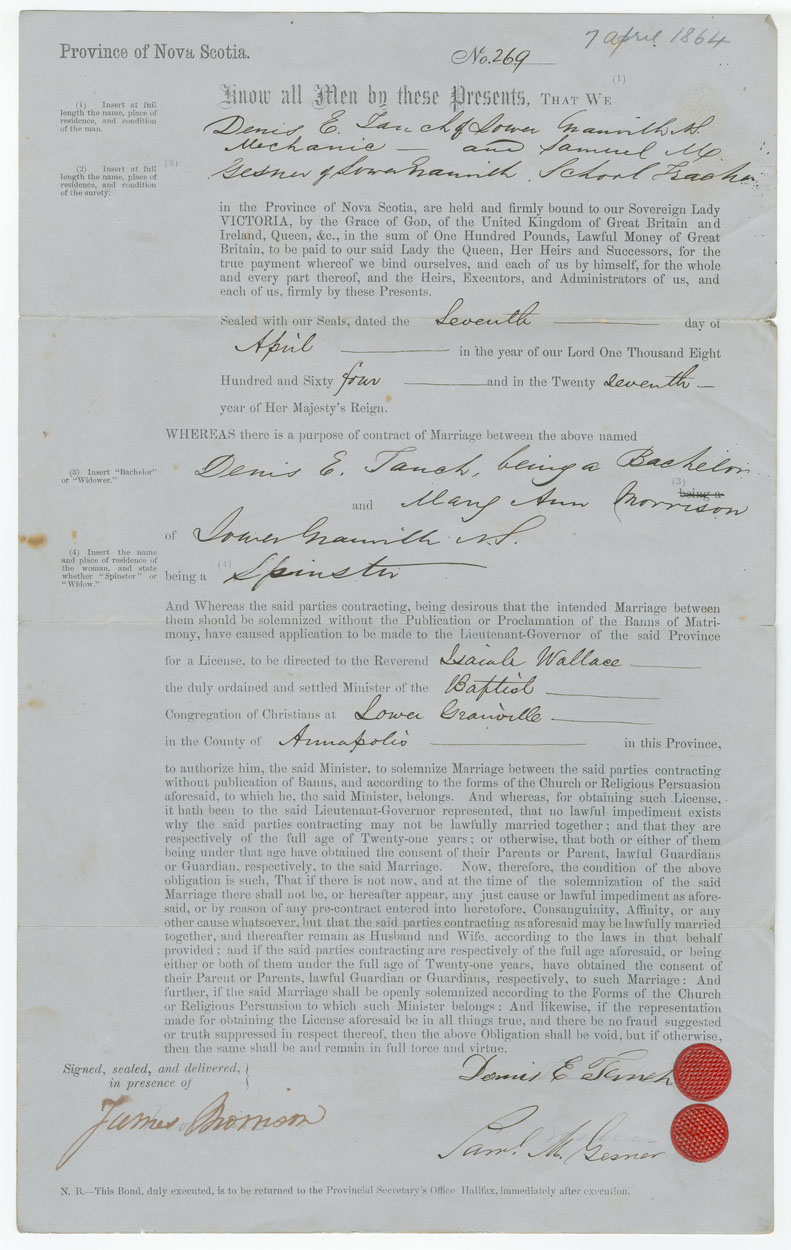 7 April 1864
Province of Nova Scotia.
No. 269
(1)
Know all Men by these Presents, THAT WE
(1) Insert at full
length the name, place of
residence, and condition
of the man.
Denis E. Tanch of Lower Granville N.S.
Mechanic — and Samuel M.
(2) Insert at full
length the name, place of
residence, and condition
of the surety.
(2)
Gesner of Lower Granville, School Teacher
in the Province of Nova Scotia, are held and firmly bound to our Sovereign Lady
VICTORIA, by the Grace of GOD, of the United Kingdom of Great Britain and
Ireland, Queen, &c., in the sum of One Hundred Pounds, Lawful Money of Great
Britain, to be paid to our said Lady the Queen, Her Heirs and Successors, for the
true payment whereof we bind ourselves, and each of us by himself, for the whole
and every part thereof, and the Heirs, Executors, and Administrators of us, and
each of us, firmly by these Presents.
Sealed with our Seals, dated the Seventh — day of
April — in the year of our Lord One Thousand Eight
Hundred and Sixty four — and in the Twenty seventh —
year of Her Majesty's Reign.
WHEREAS there is a purpose of contract of Marriage between the above named
(3) Insert "Bachelor"
or "Widower."
Denis E. Tanch, being a Bachelor
(3)
being a
and Mary Ann Morrison
of Lower Granville N.S.
(4) Insert the name
and place of residence of
the woman, and state
whether "Spinster" or
"Widow."
(4)
being a Spinster
And Whereas the said parties contracting, being desirous that the intended Marriage between
them should be solemnized without the Publication or Proclamation of the Banns of Matri-
mony, have caused application to be made to the Lieutenant-Governor of the said Province
for a License, to be directed to the Reverend Isaiah Wallace —
the duly ordained and settled Minister of the Baptist —
Congregation of Christians at Lower Granville —
in the County of Annapolis — in this Province,
to authorize him, the said Minister, to solemnize Marriage between the said parties contracting
without publication of Banns, and according to the forms of the Church or Religious Persuasion
aforesaid, to which he, the said Minister, belongs. And whereas, for obtaining such License,
it hath been to the said Lieutenant-Governor represented, that no lawful impediment exists
why the said parties contracting may not be lawfully married together; and that they are
respectively of the full age of Twenty-one years; or otherwise, that both or either of them
being under that age have obtained the consent of their Parents or Parent, lawful Guardians
or Guardian, respectively, to the said Marriage. Now, therefore, the condition of the above
obligation is such, That if there is not now, and at the time of the solemnization of the said
Marriage there shall not be, or hereafter appear, any just cause or lawful impediment as afore-
said, or by reason of any pre-contract entered into heretofore, Consanguinity, Affinity, or any
other cause whatsoever, but that the said parties contracting as aforesaid may be lawfully married
together, and thereafter remain as Husband and Wife, according to the laws in that behalf
provided; and if the said parties contracting are respectively of the full age aforesaid, or being
either or both of them under the full age of Twenty-one years, have obtained the consent of
their Parent or Parents, lawful Guardian or Guardians, respectively, to such Marriage: And
further, if the said Marriage shall be openly solemnized according to the Forms of the Church
or Religious Persuasion to which such Minister belongs: And likewise, if the representation
made for obtaining the License aforesaid be in all things true, and there be no fraud suggested
or truth suppressed in respect thereof, then the above Obligation shall be void, but if otherwise,
then the same shall be and remain in full force and virtue.
Signed, sealed, and delivered,
in presence of
Denis E Tanch
James Morrison
Saml. M. Gesner
N. B.—This Bond, duly executed, is to be returned to the Provincial Secretary's Office Halifax, immediately after execution.